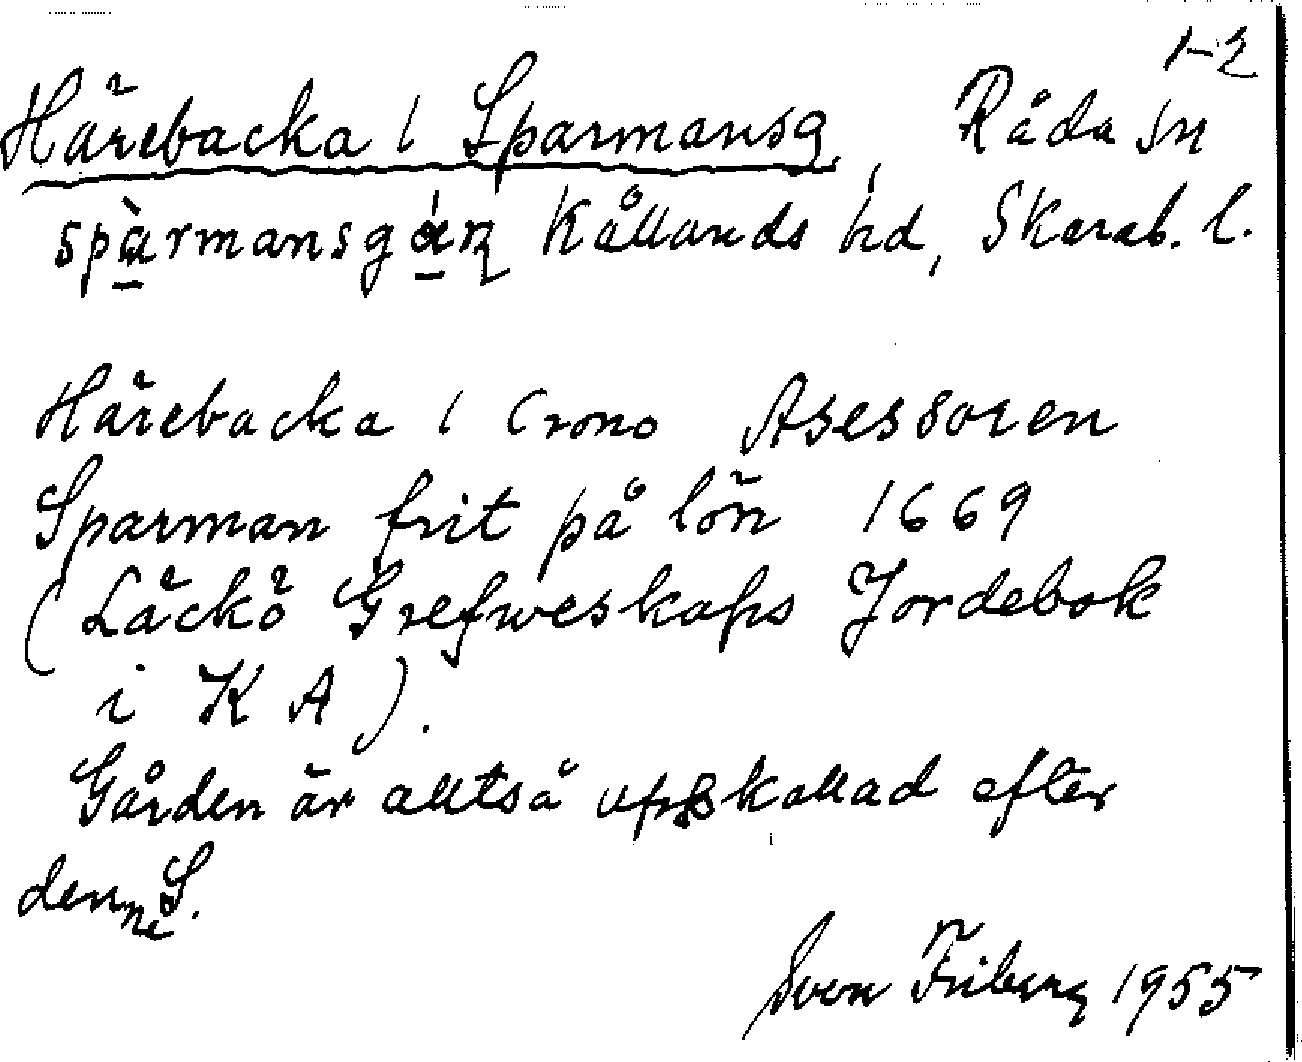 1-2
Härebacka 1 Sparmansg., Råda sn
spàrmansgán Kållands hd, Skarab. l.
Härebacka 1 Crono Asessoren
Sparman frit på lön 1669
(Läckö Grefweskaps Jordebok
i KA).
Gården är alltså uppkallad efter
denne S.
Sven Friberg 1955